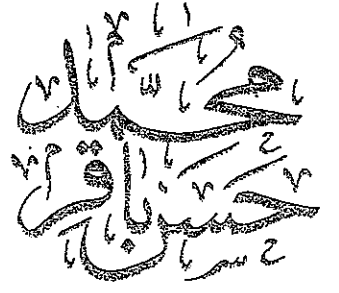 محمد
حسن باقر